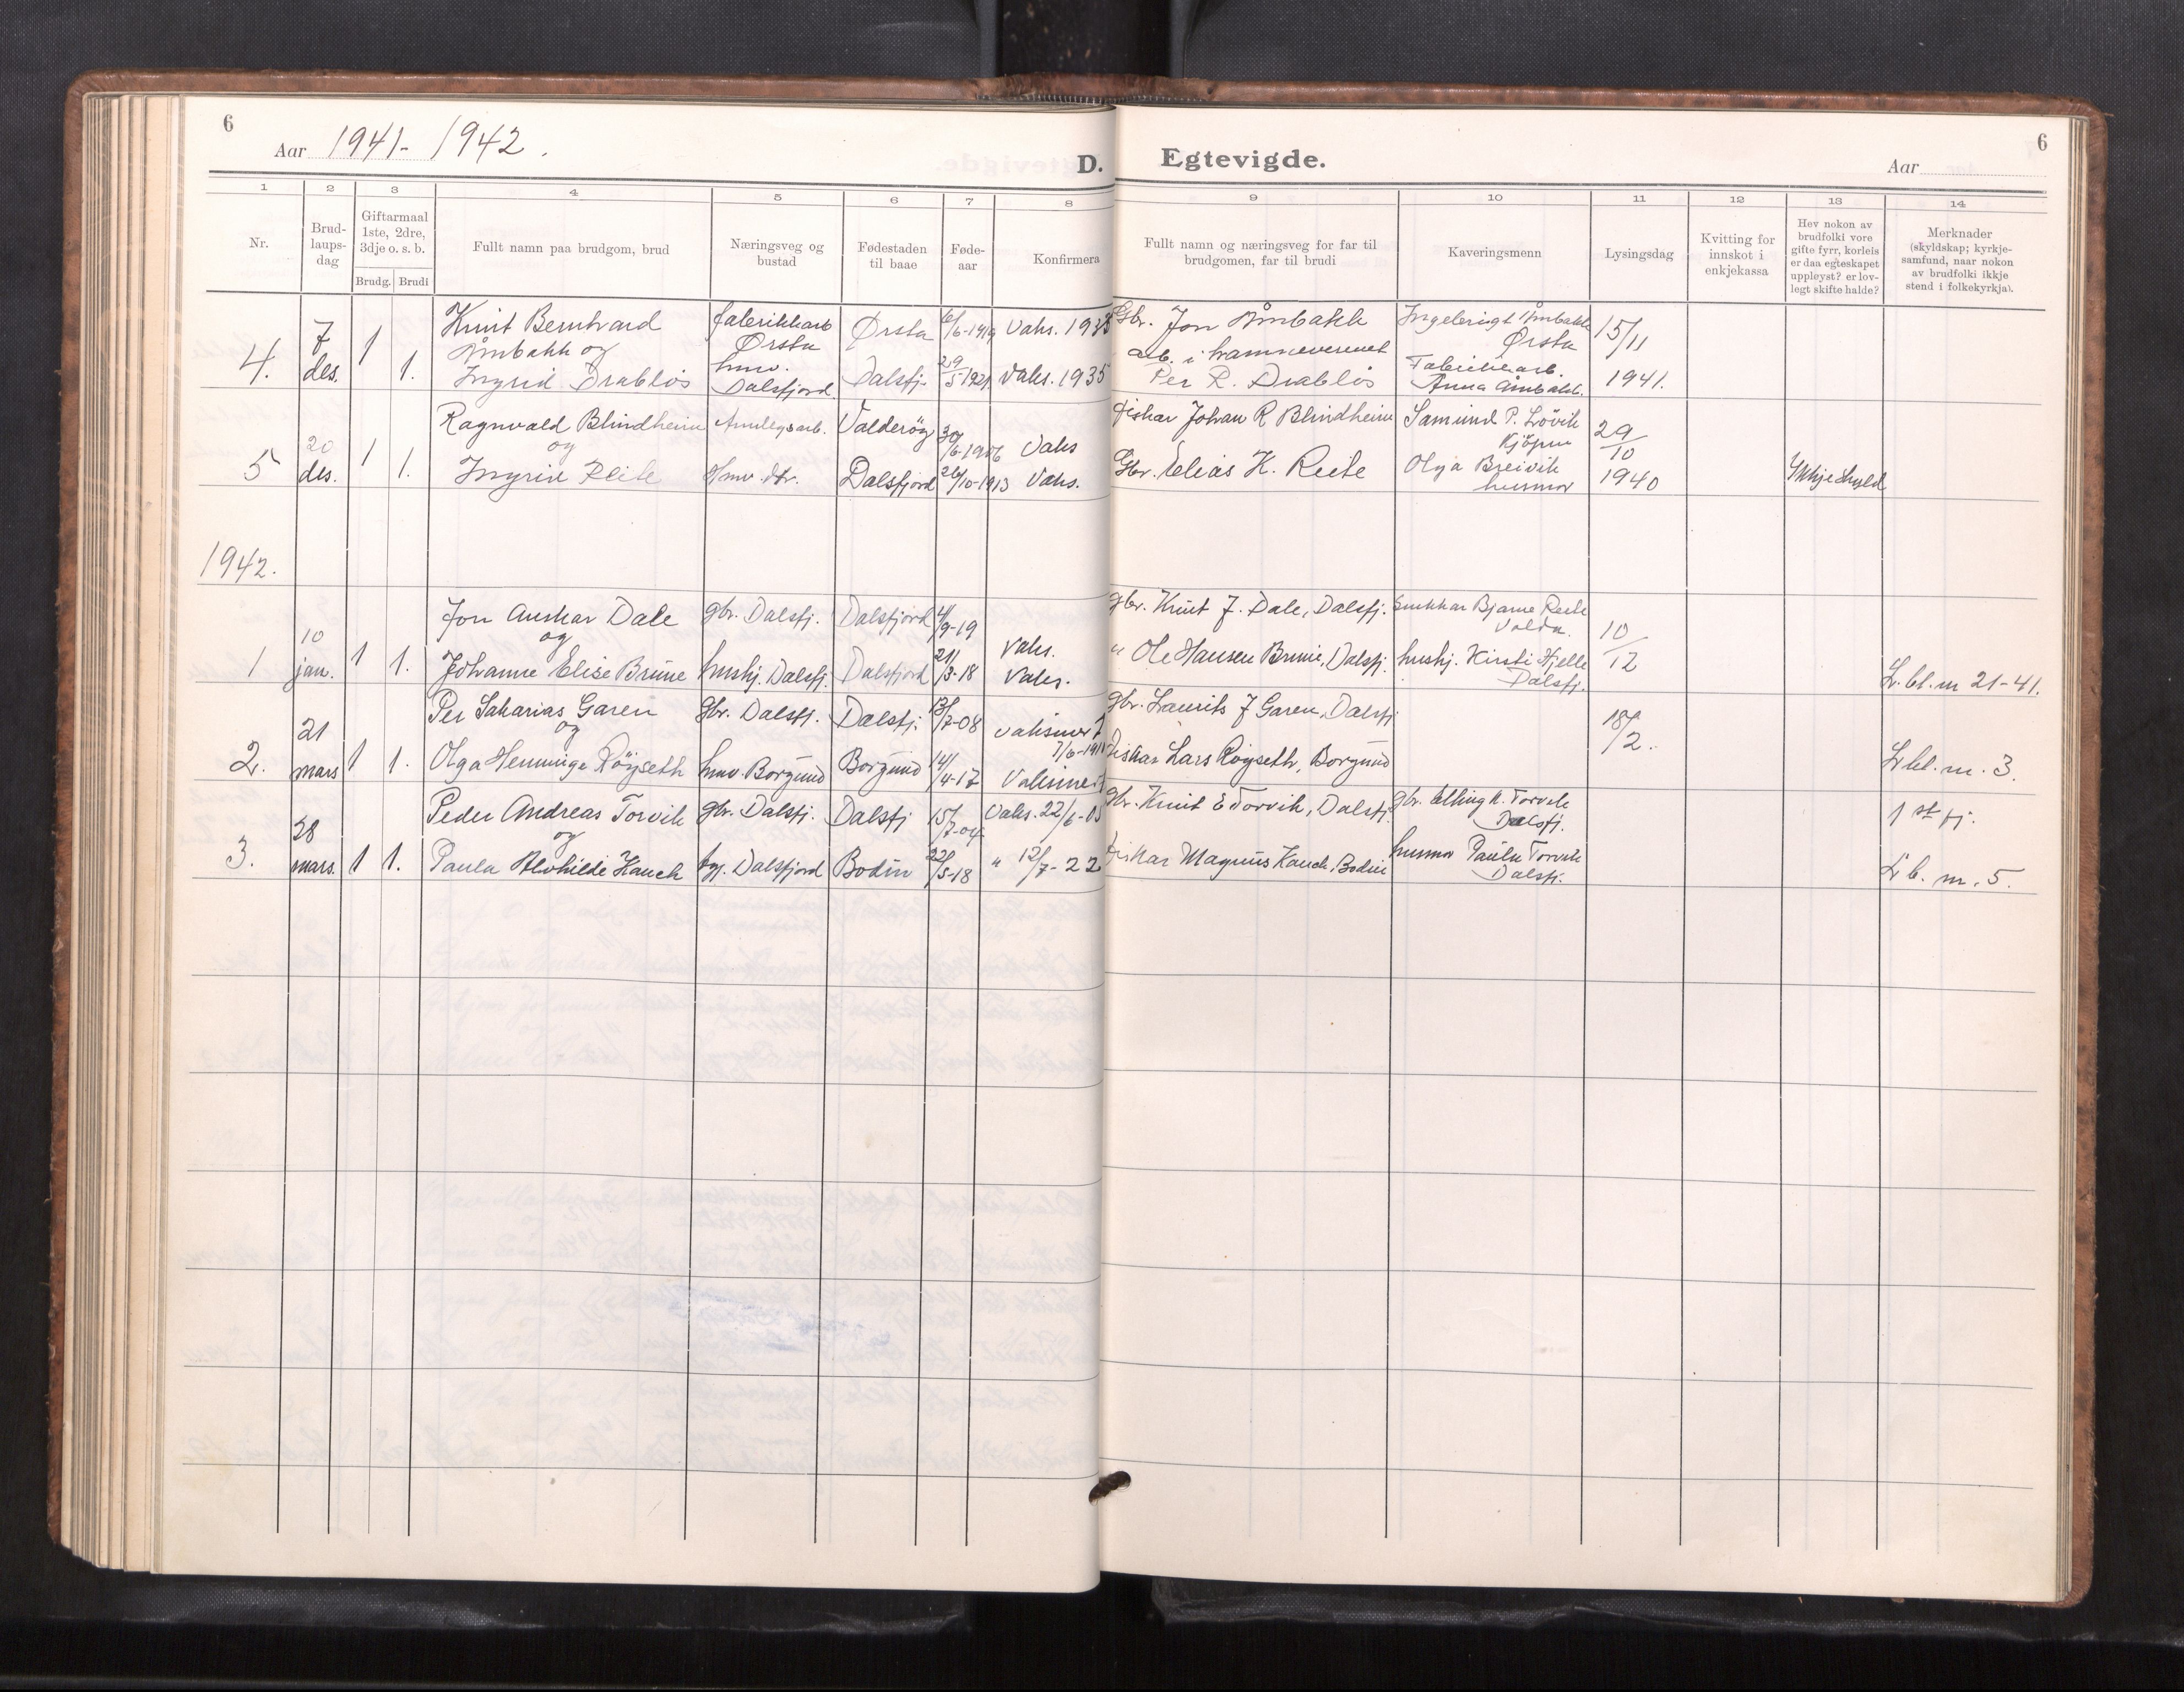 6
Aar 1941-1942.
D.
Egtevigde.
6
Aar
1 2 3 4 5 6 7 8 9 10 11 12 13 14
Nr.
Brud-
laups-
dag
Giftarmaal
1ste, 2dre,
3dje o. s. b.
Brudg. Brudi
Fullt namn paa brudgom, brud
Næringsveg og
bustad
Fødestaden
til baae
Føde-
aar
Konfirmera
Fullt namn og næringsveg for far til
brudgomen, far til brudi
Kaveringsmenn
Lysingsdag
Kvitting for
innskot i
enkjekassa
Hev nokon av
brudfolki vore
gifte fyrr, korleis
er daa egteskapet
uppløyst? er lov-
legt skifte halde?
Merknader
(skyldskap; kyrkje-
samfund, naar nokon
av brudfolki ikkje
stend i folkekyrkja).
4. 7 des. 1 1.
Knut Bernhard
Åmbakk og
Ingrid Drabløs
fabrikkarb
Ørsta
hmv.
Dalsfjord
Ørsta
Dalsfj.
6/6-1919
29/5 1921
Vaks. 1933
Vaks. 1935
Gbr. Jon Åmbakk
arb. i hamnevesenet
Per R. Drabløs
Ingebrigt Åmbakk
Ørsta
Fabrikkarb.
Anna Åmbakk.
15/11
1941.
5 20 des. 1 1.
Ragnvald Blindheim
og
Ingrid Reite
Anleggsarb.
Hmv. dtr.
Valderøy
Dalsfjord
30/6-1906
26/10-1913
Vaks
Vaks.
Fiskar Johan R Blindheim
Gbr. Elias K. Reite
Samund P. Løvik
Kjøpm
Olga Breivik
husmor
29/10
1940
Ikkje skyld
1942.
1 10 jan. 1 1.
Jon Anskar Dale
og
Johanne Elise Brune
gbr. Dalsfj.
hushj. Dalsfj.
Dalsfjord
Dalsfjord
4/9-19
21/3-18
Vaks.
Vaks.
gbr. Knut J. Dale, Dalsfj.
" Ole Hansen Brune, Dalsfj.
Bjarne Reite
Volda.
hushj. Kirsti Hjelle
Dalsfj.
10/12
L. bl. m 21-41.
2. 21 mars 1 1.
Per Sakarias Garen
og
Olga Henninge Röyseth
Gbr. Dalsfj.
hmv. Borgund
Dalsfj.
Borgund
13/7-08
14/4-17
Gbr. Laurits J Garen, Dalsfj
Fiskar Lars Röyseth, Borgund
18/2.
L bl. m. 3.
3. 28 mars. 1 1.
Peder Andreas Torvik
og
Paula Alvhilde Hauch
gbr. Dalsfj.
Dalsfjord
Dalsfj
Bodin
15/7-04
22/5-18
Vaks. 22/6-05
" 12/7-22
gbr. Knut E Torvik, Dalsfj.
Fiskar Magnus Hauch, Bodin
gbr. Elling K. Torvik
Dalsfj.
husmor Paula Torvik
Dalsfj.
1 st fj.
L b. m. 5.